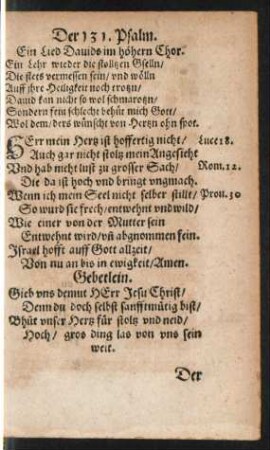 Der 131. Psalm.
Ein Lied Dauids im höhern Chor.
Ein Lehr wieder die stoltzen Gselln/
Die stets vermessen sein/ vnd wölln
Auff ihre Heiligkeit noch trotzn/
Dauid kan nicht so wol schmarotzn/
Sondern fein schlecht behüt mich Gott/
Wol dem/ ders wünscht von Hertzn ohn spot.
HErr mein Hertz ist hoffertig nicht/ Luce 18.
Auch gar nicht stoltz mein Angesicht
Vnd hab nicht lust zu grosser Sach/ Rom. 12.
Die da ist hoch vnd bringt vngmach.
Wenn ich mein Seel nicht selber stillt/ Prou. 30
So würd sie frech/ entwehnt vnd wild/
Wie einer von der Mutter sein
Entwehnt wird/ vñ abgnommen fein.
Israel hofft auff Gott allzeit/
Von nu an bis in ewigkeit/ Amen.
Gebetlein.
Gieb vns demut HErr Jesu Christ/
Denn du doch selbst sanfftmütig bist/
Bhüt vnser Hertz für stoltz vnd neid/
Hoch/ gros ding las von vns sein
weit.
Der